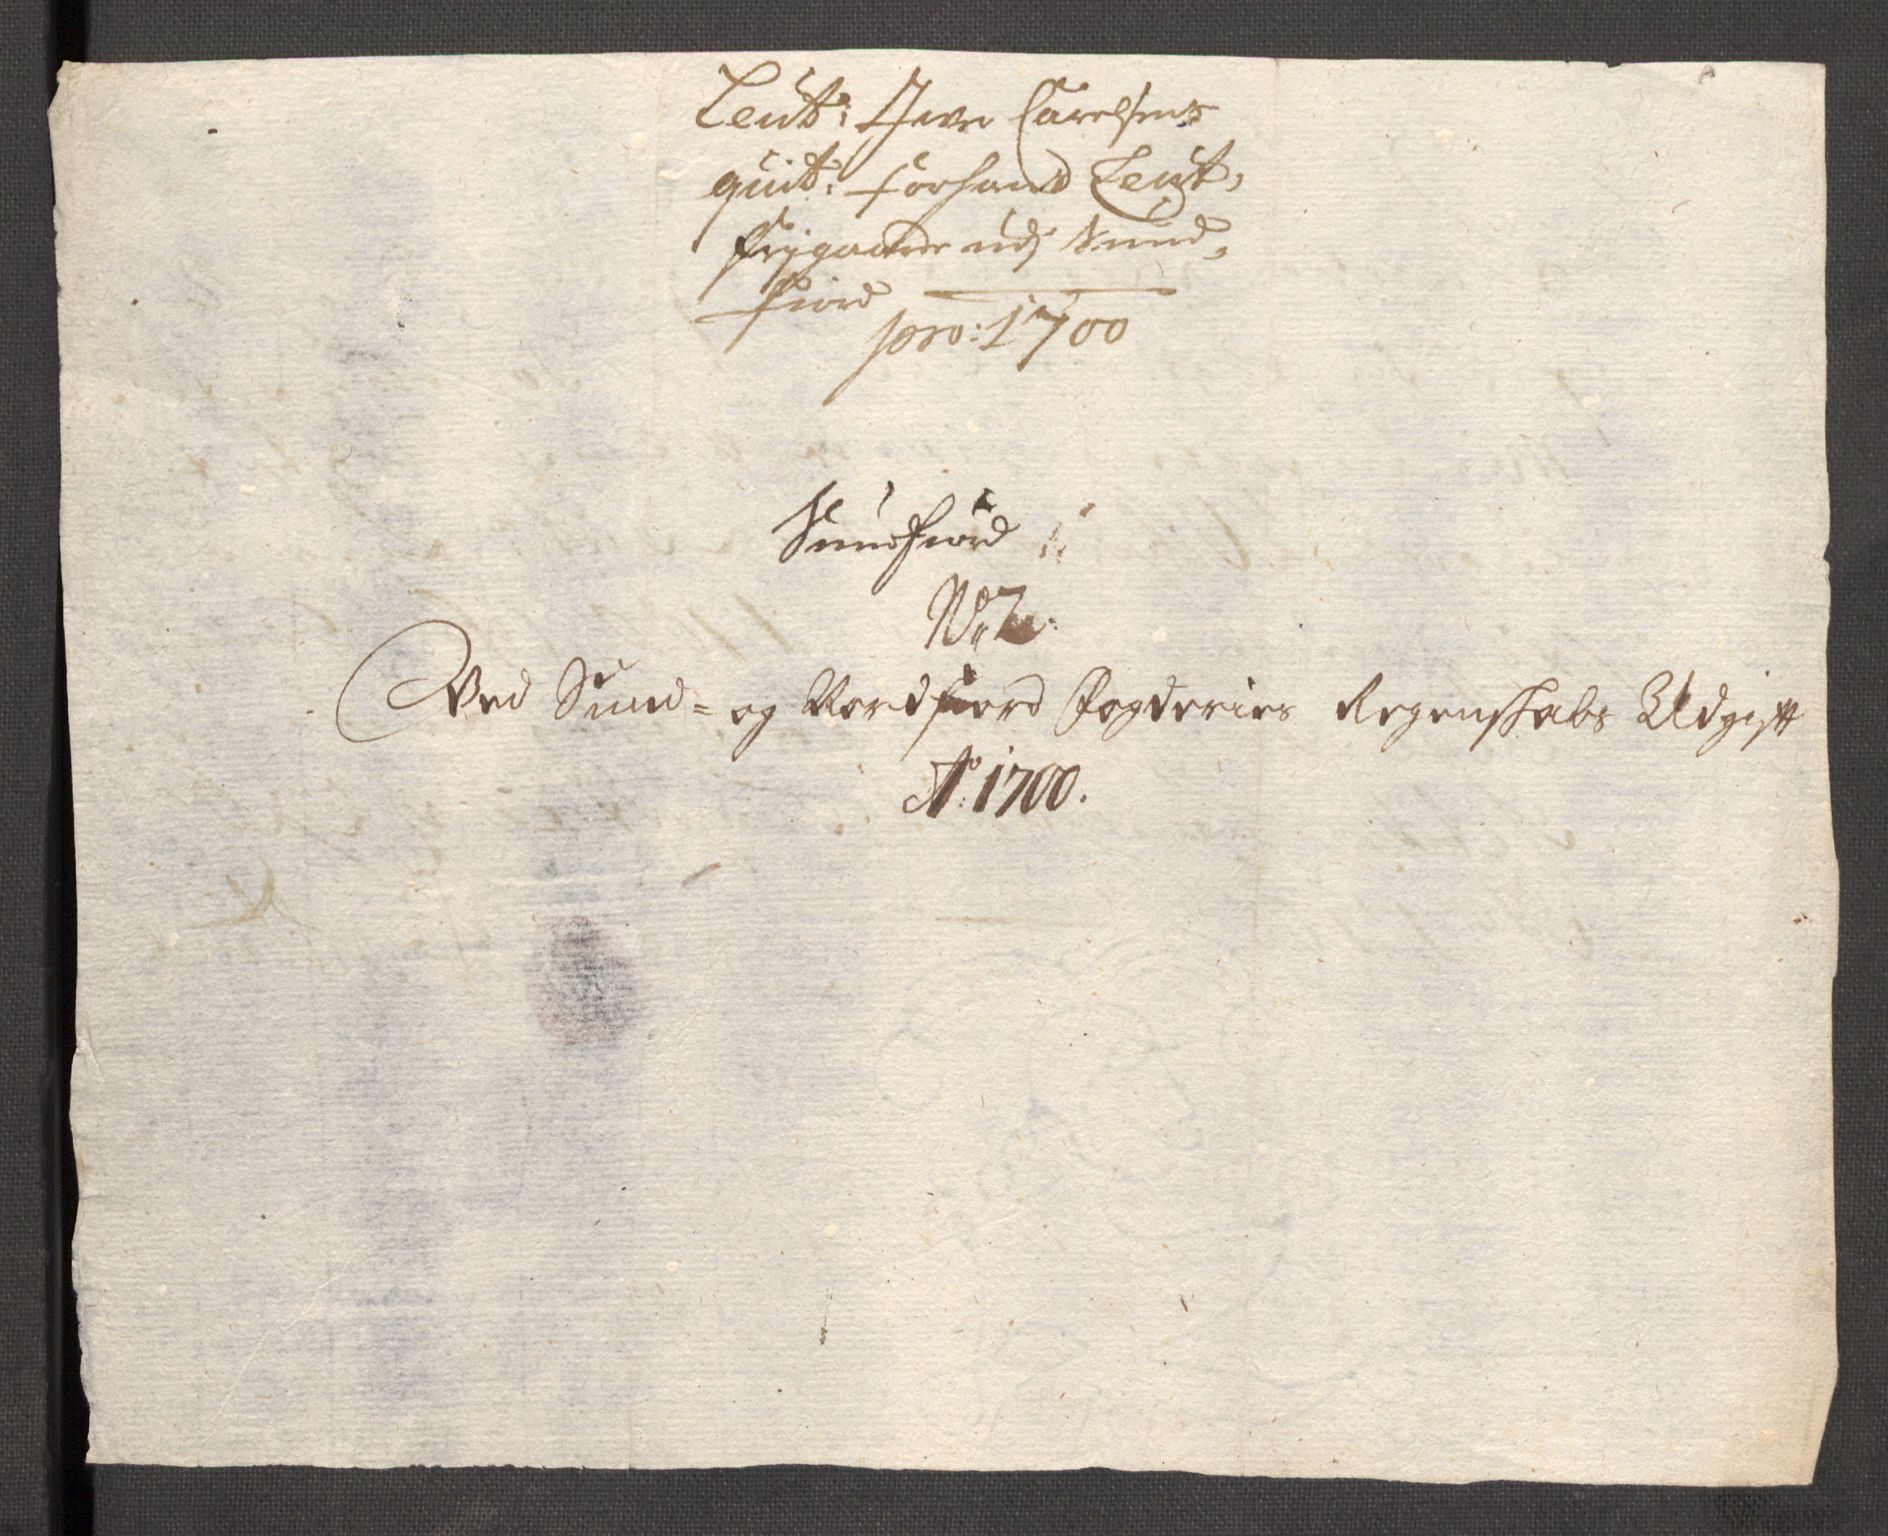 Leut: Iver Carelsens
quit: for hans Leut,
frjgaarde udj Sund,
fiord
pro: 1700
Sundfiord
No 2.
Ved Sund= og Nordfiord Fogderies Regenskabs Udgift
Ao: 1700.